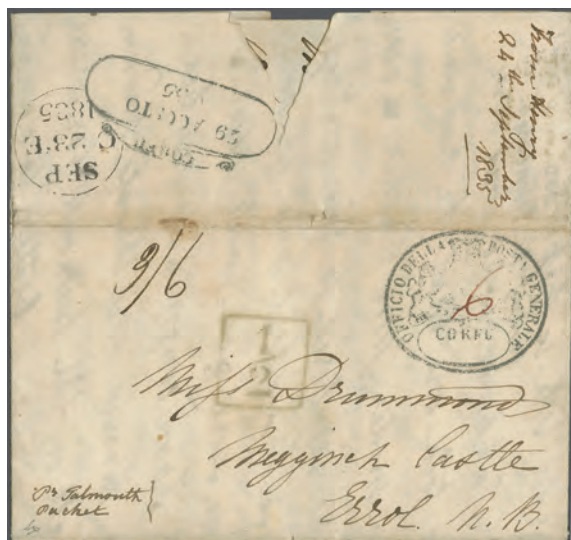 From Henry
24th September
1835
29 AGOSTO
SEP
C 23 E
1835
9/6
OFFICIO DELLA POSTA GENERALE
6
CORFU
1/2
Miss Drummond
Megginch Castle
Errol. N. B.
Pr Falmouth
Packet